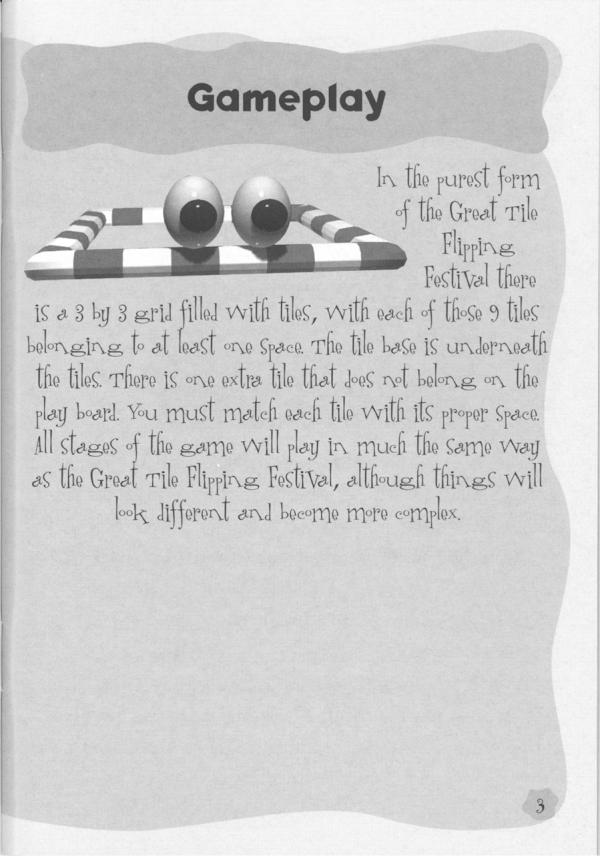 Gameplay
In the purest form
of the Great Tile
Flipping
Festival there
is a 3 by 3 grid filled with tiles, with each of those 9 tiles
belonging to at least one space. The tile base is underneath
the tiles. There is one extra tile that does not belong on the
play board. You must match each tile with its proper space.
All stages of the game will play in much the same way
as the Great Tile Flipping Festival, although things will
look different and become more complex.
3